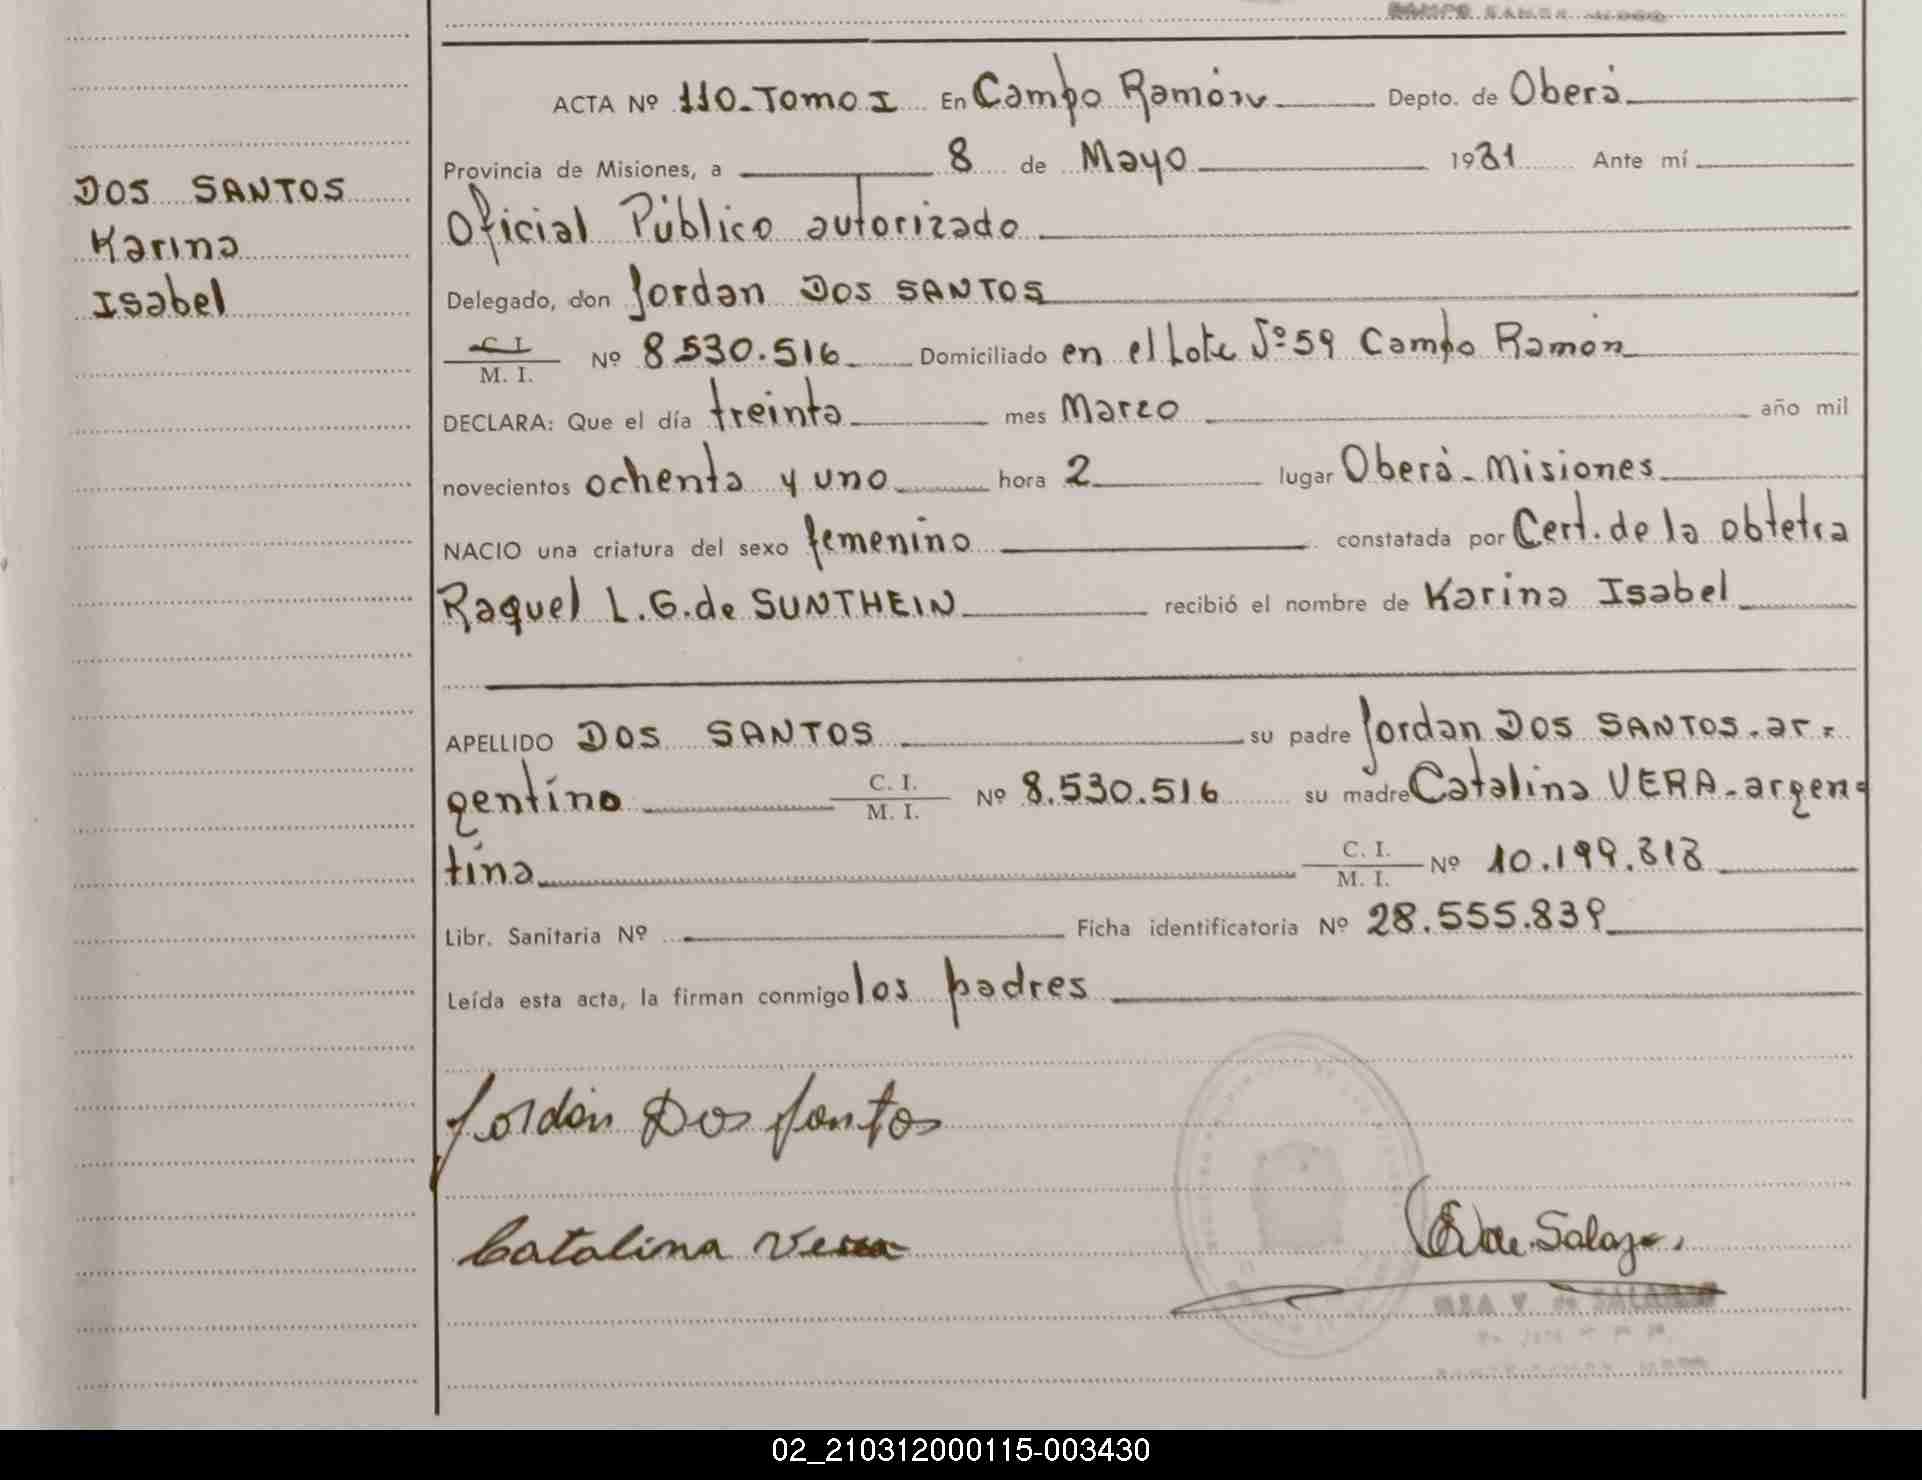 ACTA Nº 110-Tomo I En Campo Ramón Depto. de Oberá
Provincia de Misiones, a 8 de Mayo 1981 Ante mí
DOS SANTOS
Karina
Isabel
Oficial Público autorizado
Delegado, don Jordan DOS SANTOS
C. I.
M. I. Nº 8.530.516 Domiciliado en el Lote Nº 59 Campo Ramón
DECLARA: Que el día treinta mes Marzo año mil
novecientos ochenta y uno hora 2 lugar Oberá-Misiones
NACIO una criatura del sexo femenino constatada por Cert. de la obtetra
Raquel L. G. de SUNTHEIN recibió el nombre de Karina Isabel
APELLIDO DOS SANTOS su padre Jordan DOS SANTOS-ar-
gentino C. I. M. I. Nº 8.530.516 su madre Catalina VERA-argen-
tina C. I. M. I. Nº 10.199.313
Libr. Sanitaria Nº Ficha identificatoria Nº 28.555.839
Leída esta acta, la firman conmigo los padres
Jordán Dos Santos
Catalina Vera
de Salaz
02_210312000115-003430